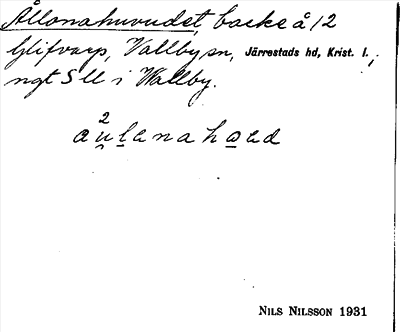 Ållonahuvudet, backe å 12
Glifvarp, Vallby sn, Järrestads hd, Krist. l.,
ngt S ll i Wallby.
2
au̯lanahɷad
NILS NILSSON 1931